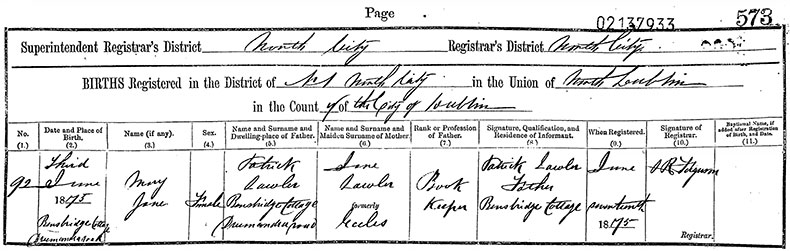 Page
02137933
573
Superintendent Registrar's District North City Registrar's District North City
BIRTHS Registered in the District of No 1 North City in the Union of North Dublin
in the Count y of the City of Dublin
No. Date and Place of Birth. Name (if any). Sex. Name and Surname and Dwelling-place of Father. Name and Surname and Maiden Surname of Mother. Rank or Profession of Father. Signature, Qualification, and Residence of Informant. When Registered. Signature of Registrar. Baptismal Name, if added after Registration of Birth, and Date.
(1.) (2.) (3.) (4.) (5.) (6.) (7.) (8.) (9.) (10.) (11.)
Third Patrick Jane Patrick Lawler June
92 June Mary Lawler Lawler Book Father
1875 Jane Female Bonsbridge Cottage formerly Keeper Bonsbridge Cottage seventeenth
Bonsbridge Cottage Eccles 1875
Registrar.